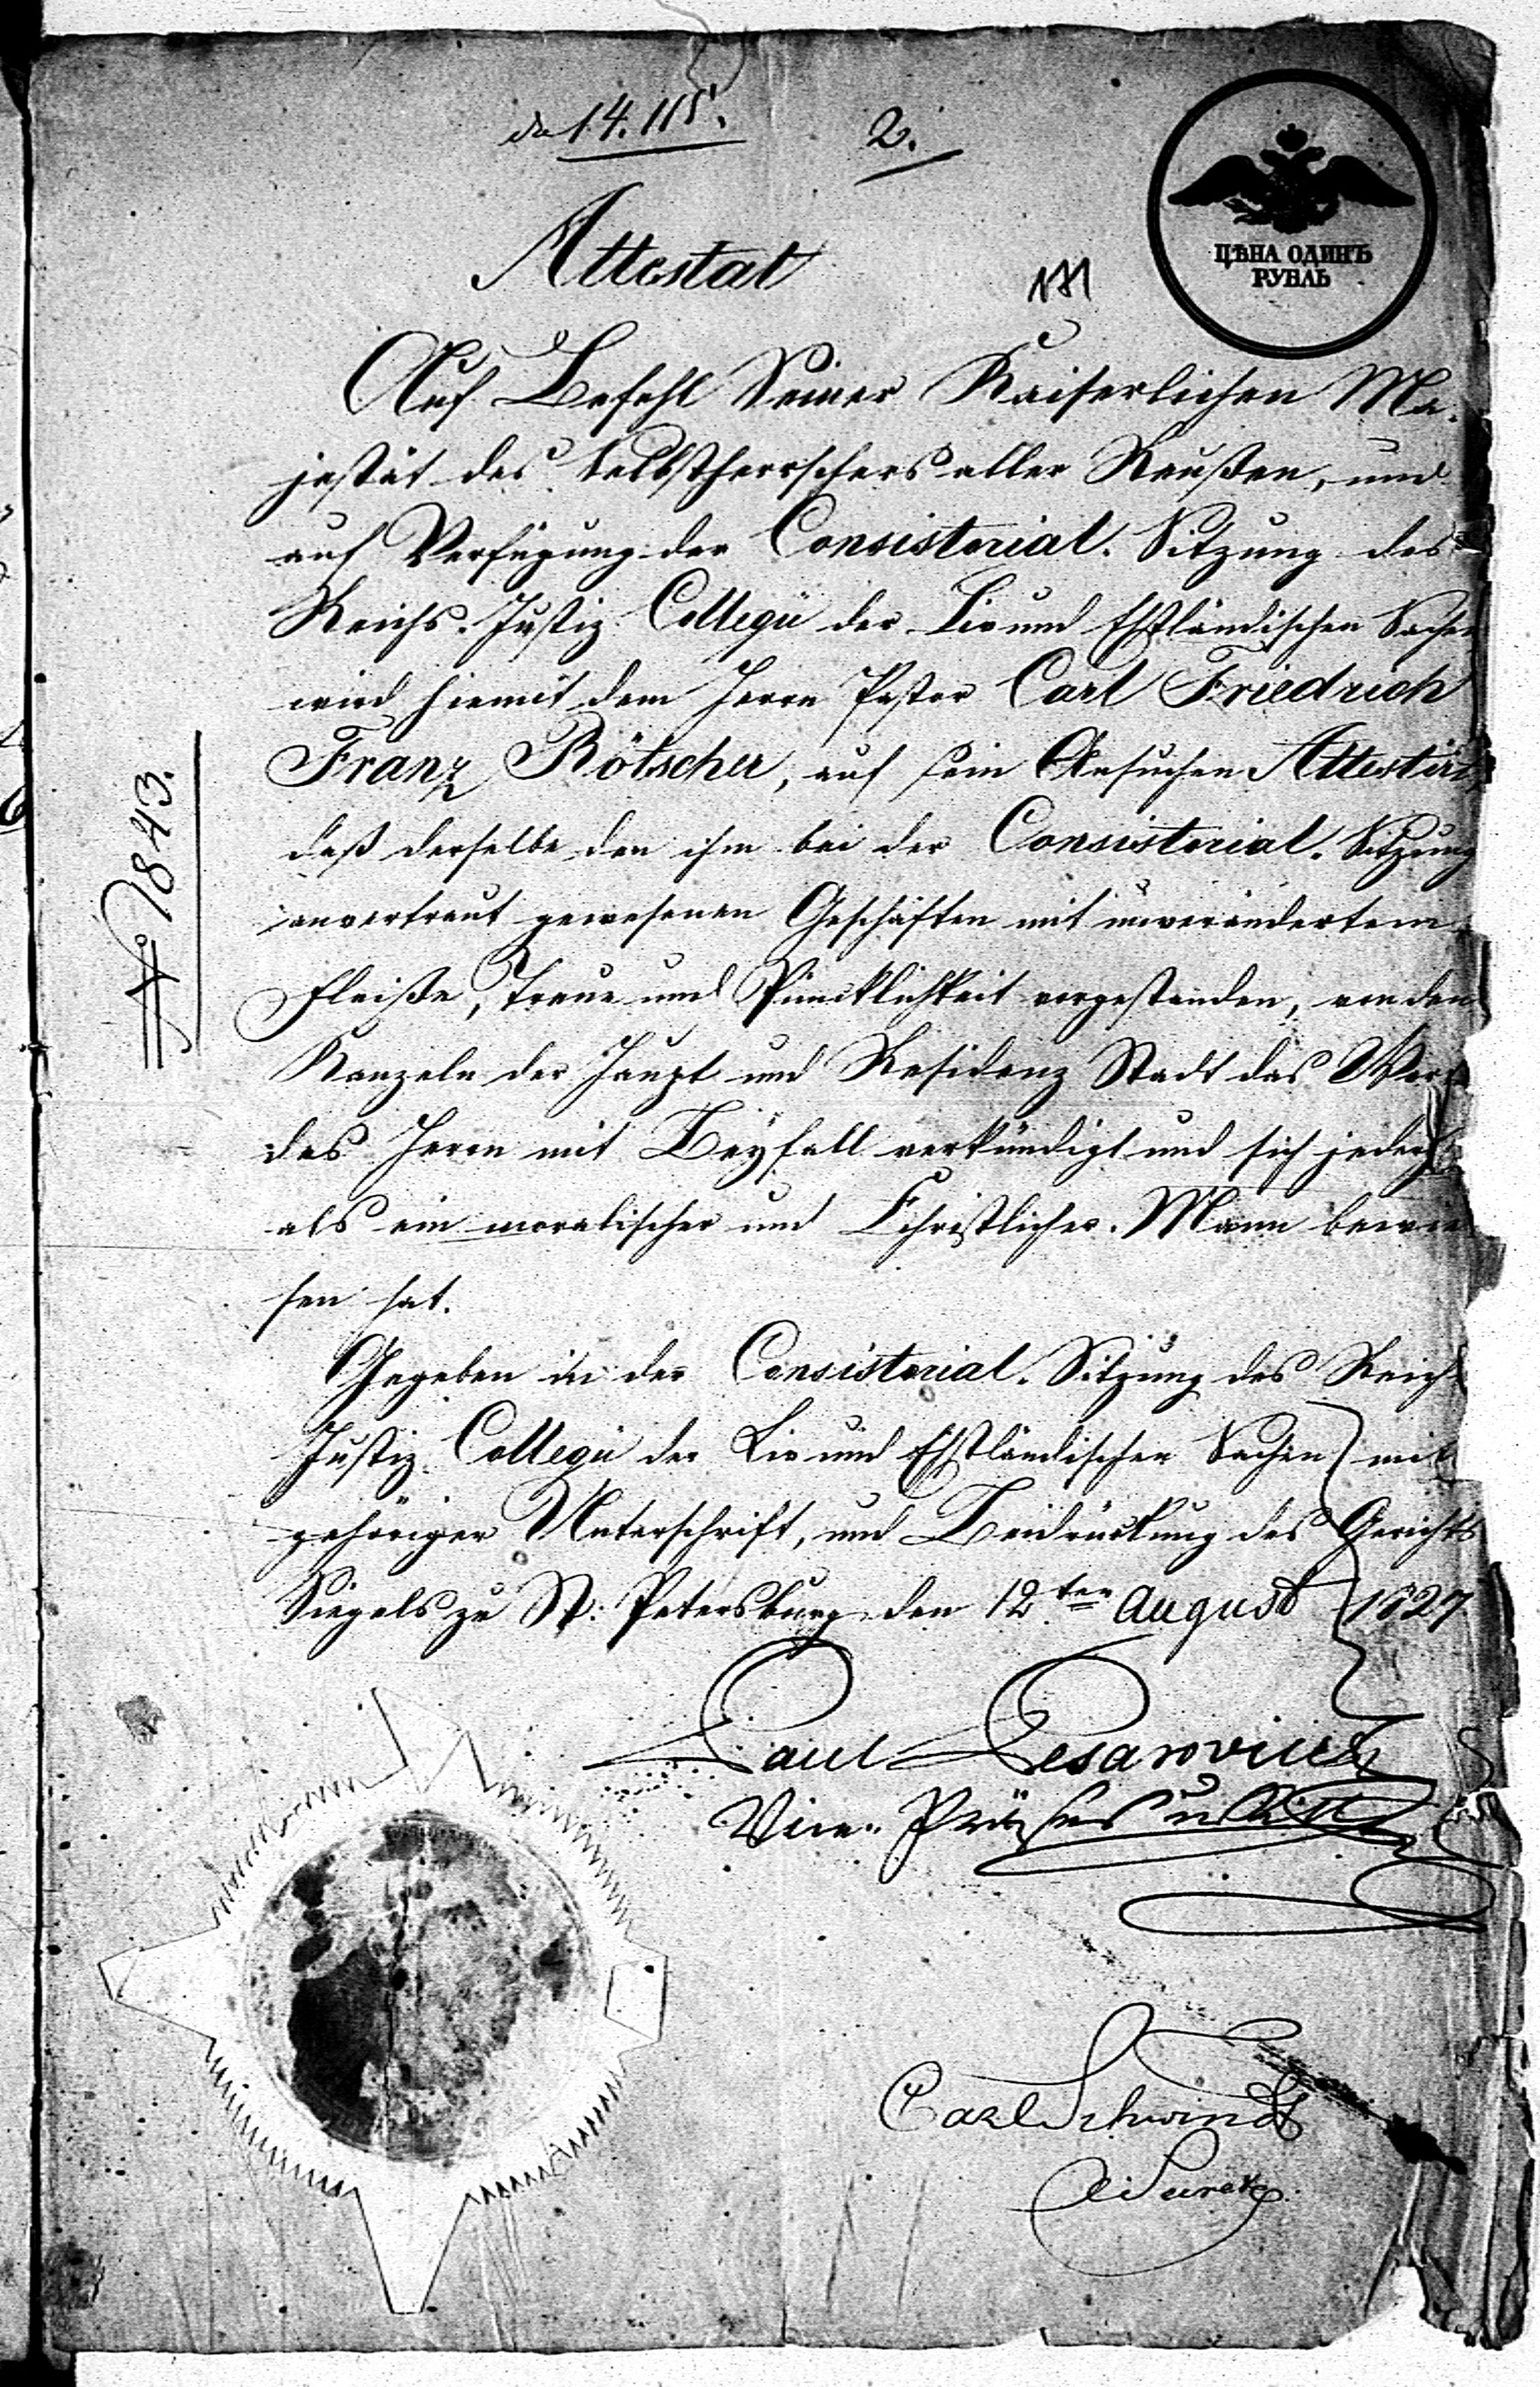 2.
ЦѢНА ОДИНЪ
РУБЛЬ
Attestat
Auf Befehl Seiner Kaiserlichen Ma-
jestät des Selbstherrschers aller Reußen, und
auf Verfügung der Consistorial-Sitzung des
Reichs-Justiz Collegii der Liv und Ehstländischen Sachen
wird hiemit dem Herrn Pastor Carl Friedrich
Franz Rötscher, auf sein Ansuchen Attestirt,
daß derselbe den ihm bei der Consistorial-Sitzung
anvertraut gewesenen Geschäften mit unverändertem
Fleiße, Treue und Püncktlichkeit vorgestanden, von den
Kanzeln der Haupt und Residenz Stadt das Wort
des Herrn mit Beyfall verkündigt und sich
als ein moralischer und Christlicher Mann bewie
sen hat.
Gegeben in der Consistorial-Sitzung des Reichs
Justiz Collegii der Liv und Ehstländischen Sachen mit
gehöriger Unterschrift, und Beidrückung des Gerichts
Siegels zu St: Petersburg den 12ten August 1827
Paul Pesarovius
Vice-Präses
Carl Schwindt
Secret:
№ 1843.